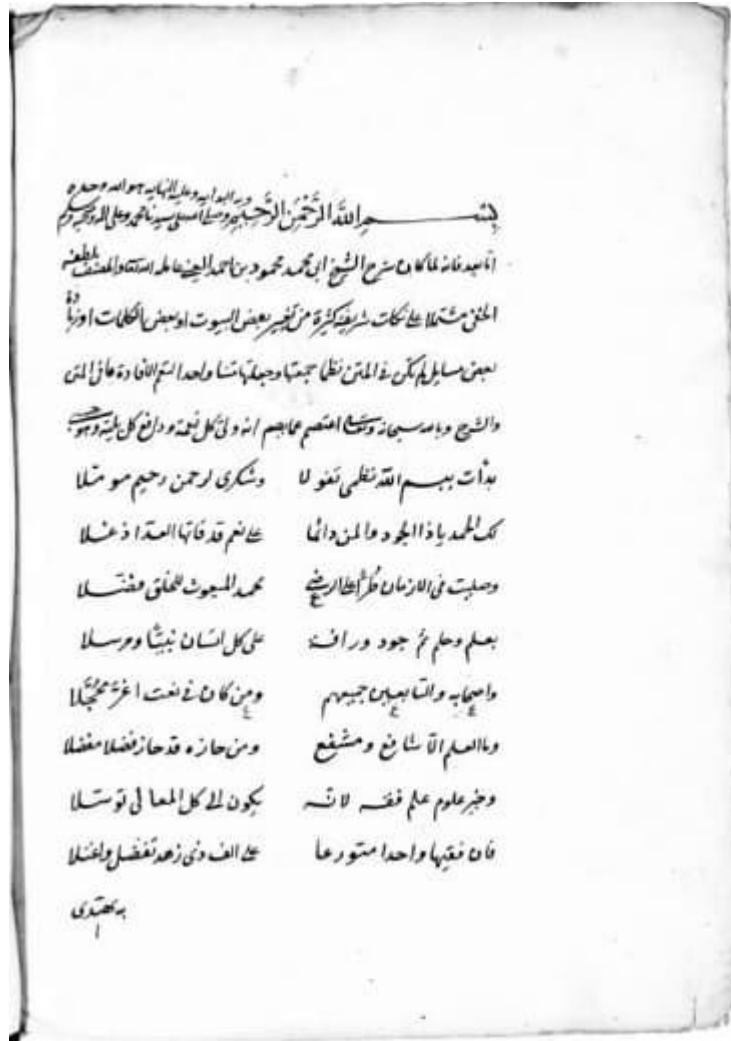 وبه البداية وعليه النهاية هو الله وحده
بسم الله الرحمن الرحيم وصلى الله على سيدنا محمد وعلى اله وصحبه وسلم
اما بعد فانه لما كان شرح الشيخ ابى محمد محمود بن احمد العينى عامله الله تعالى والمصنف بلطفه
الخفى مشتملا على نكات شريفة كثيرة من تغيير بعض البيوت او بعض الكلمات او زيادة
بعض مسايل لم تكن فى المتن نظما جمعتها وجعلتها متنا واحدا لتتم الافادة بما فى المتن
والشرح وبالله سبحانه وتعالى اعتصم عما يصم انه ولى كل نعمة ودافع كل بلية وهو حسبى
بدأت ببسم الله نظمى تفولا وشكرى لرحمن رحيم موئلا
لك الحمد ياذا الجود والمن دائما على نعم قد فاتها العد اذ علا
وصليت فى الازمان طرا على الرضى محمد المبعوث للخلق مفضلا
بعلم وحلم ثم جود ورافة على كل انسان نبيا ومرسلا
واصحابه والتابعين جميعهم ومن كان فى نعت اغر محجلا
وما العلم الا شافع ومشفع ومن حازه قد حاز فضلا مفضلا
وخير علوم علم فقه لانه يكون الى كل المعالى توسلا
فان فقيها واحدا متورعا على الف ذى زهد تفضل واعتلا
به يهتدى